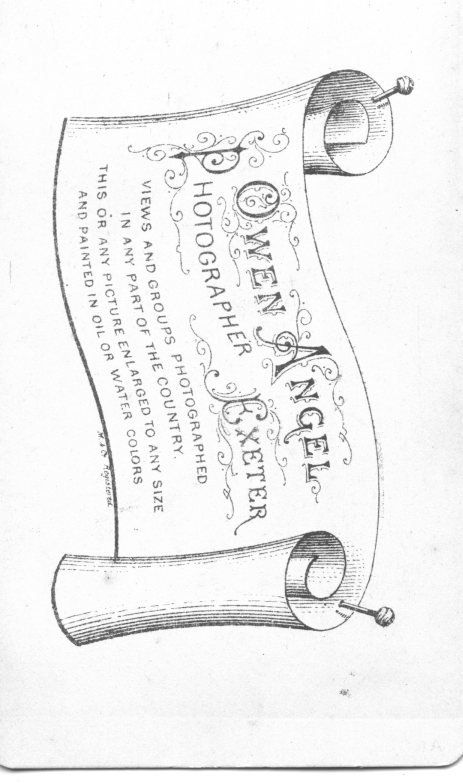 OWEN ANGEL
PHOTOGRAPHER EXETER
VIEWS AND GROUPS PHOTOGRAPHED
IN ANY PART OF THE COUNTRY.
THIS OR ANY PICTURE ENLARGED TO ANY SIZE
AND PAINTED IN OIL OR WATER COLORS
Registered